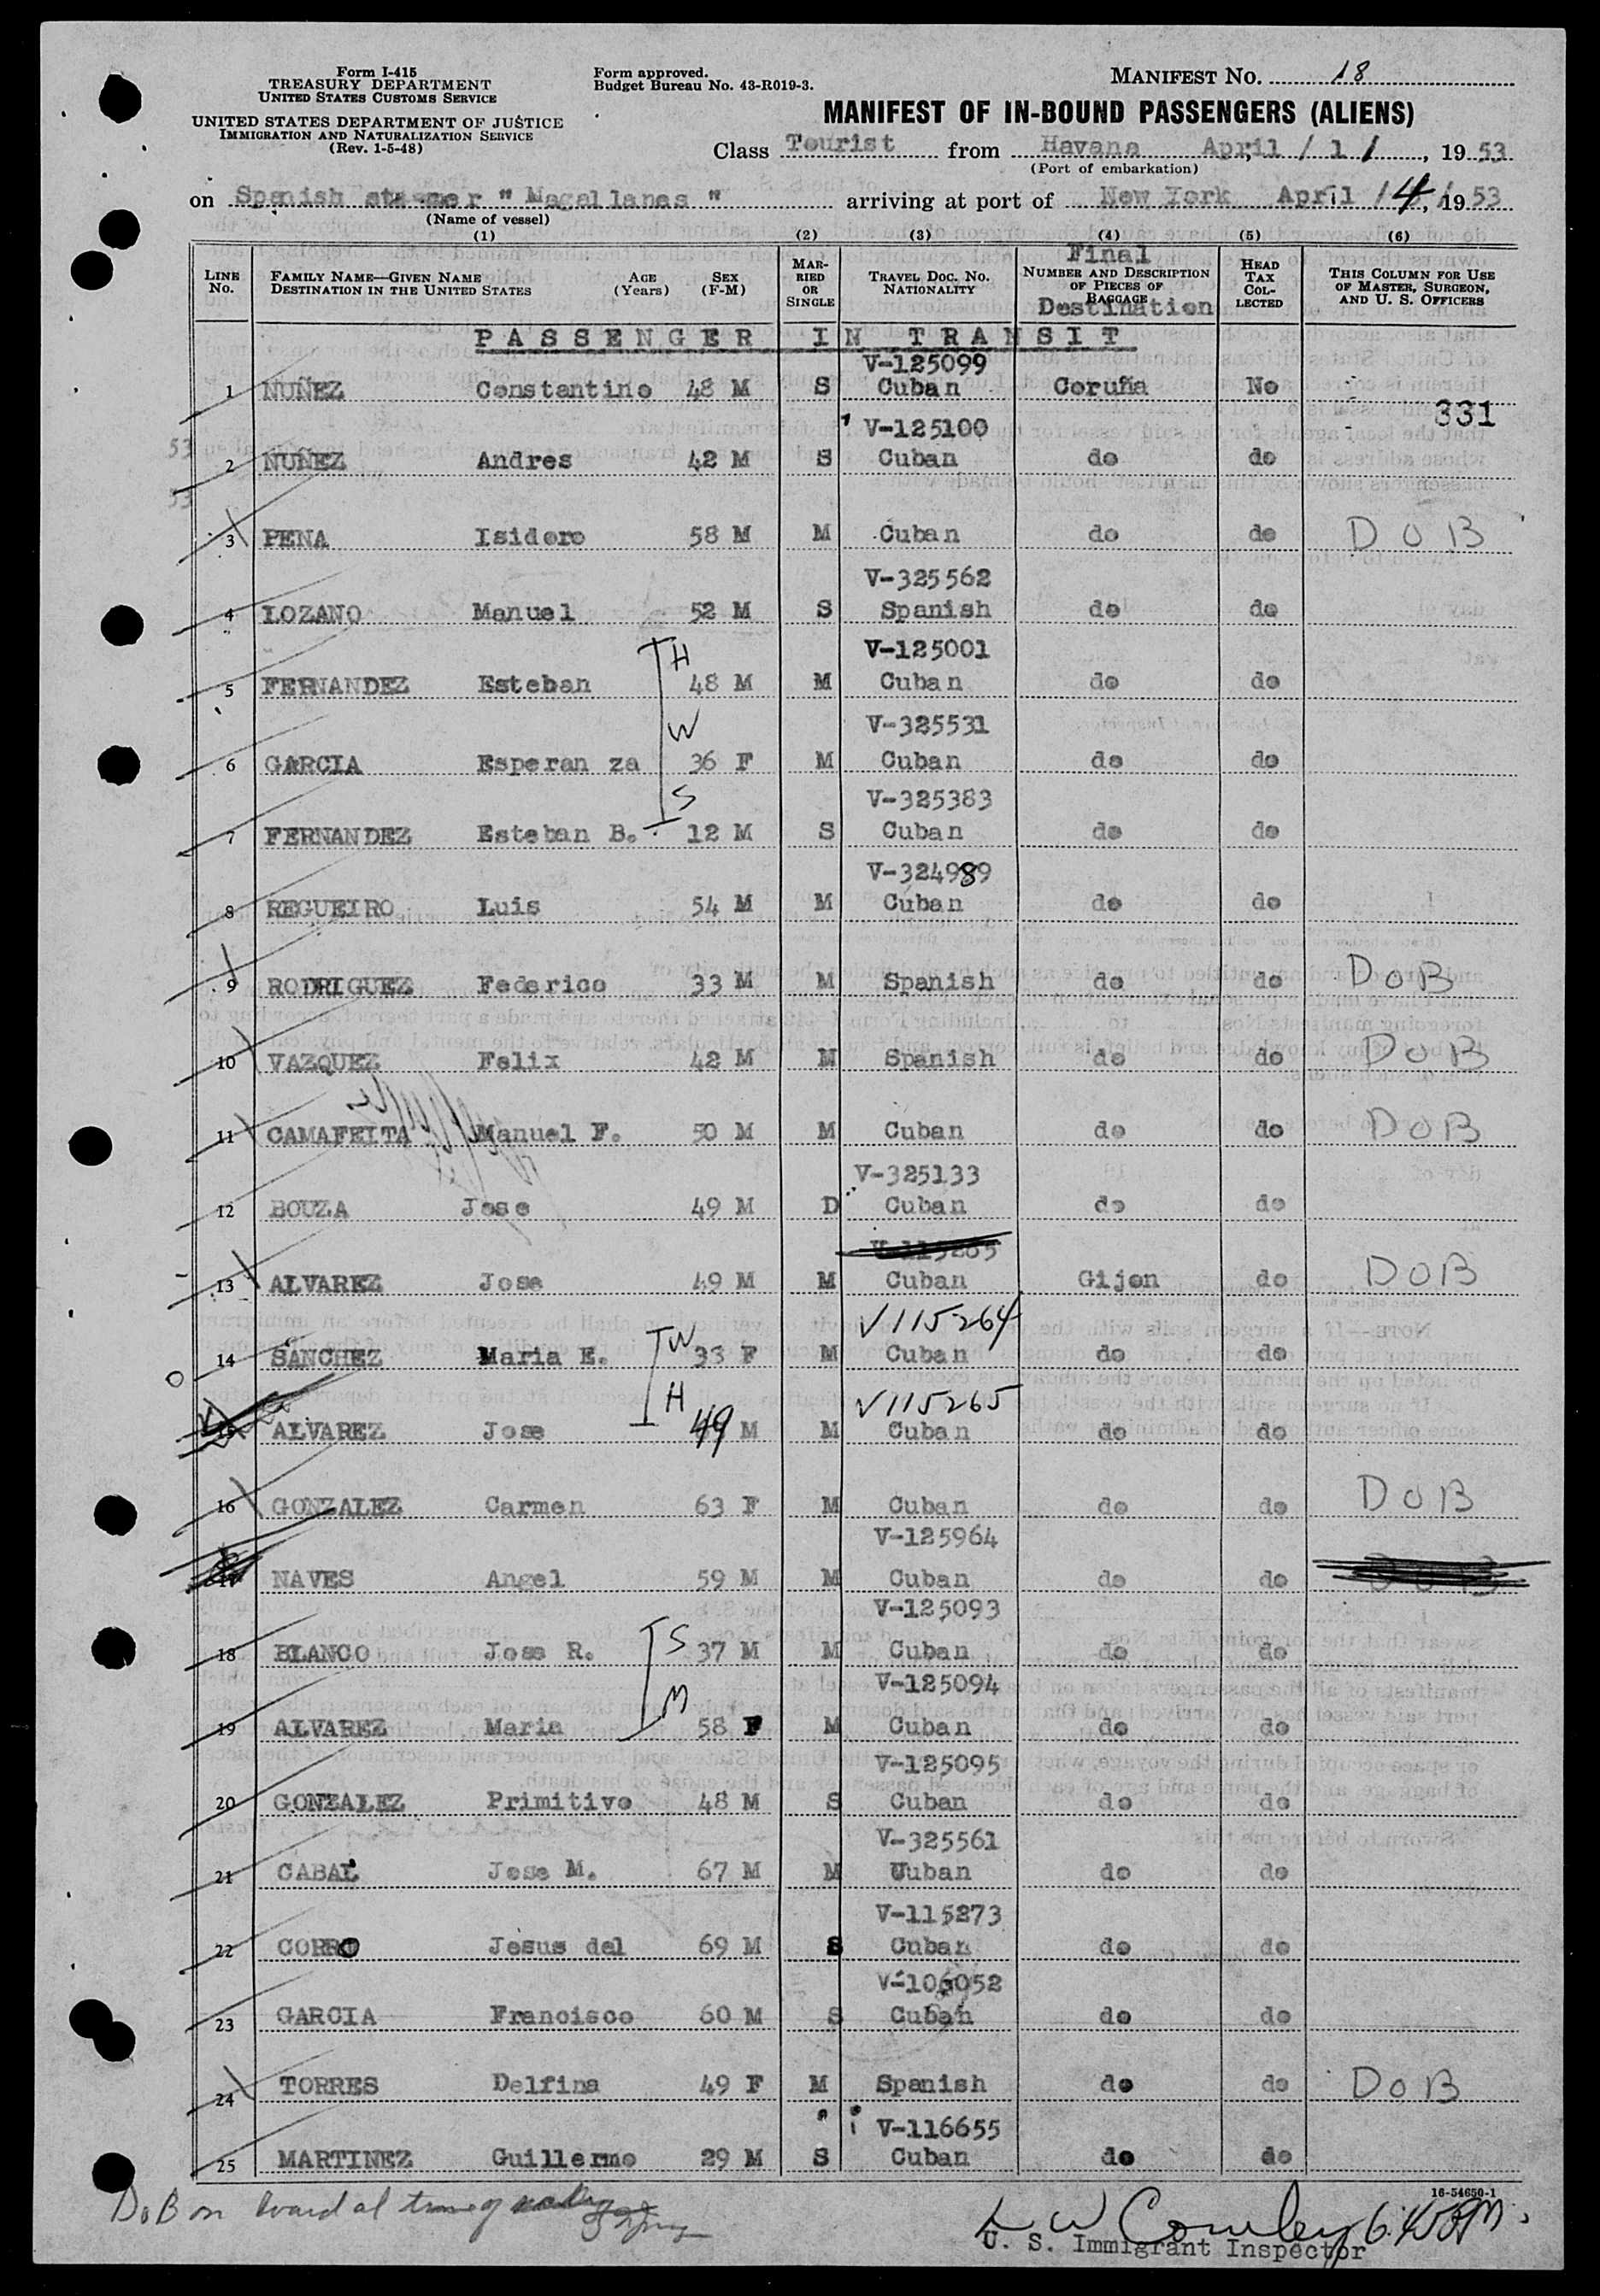 Form I-415
TREASURY DEPARTMENT
UNITED STATES CUSTOMS SERVICE
UNITED STATES DEPARTMENT OF JUSTICE
IMMIGRATION AND NATURALIZATION SERVICE
(Rev. 1-5-48)
Form approved.
Budget Bureau No. 43-R019-3.
MANIFEST NO. 18
MANIFEST OF IN-BOUND PASSENGERS (ALIENS)
Class Tourist from Havana April / 1 1, 1953
(Port of embarkation)
on Spanish steamer " Magallanes " arriving at port of New York April 14, 1953
(Name of vessel)
(1) (2) (3) (4) (5) (6)
LINE No. FAMILY NAME—GIVEN NAME DESTINATION IN THE UNITED STATES AGE (Years) SEX (F-M) MARRIED OR SINGLE TRAVEL DOC. NO. NATIONALITY Final NUMBER AND DESCRIPTION OF PIECES OF BAGGAGE Destination HEAD TAX COLLECTED THIS COLUMN FOR USE OF MASTER, SURGEON, AND U. S. OFFICERS
PASSENGER IN TRANSIT
V-125099
1 NUÑEZ Constantino 48 M S Cuban Coruña No
331
V-125100
2 NUÑEZ Andres 42 M S Cuban do do
3 PENA Isidoro 58 M M Cuban do do DOB
V-325562
4 LOZANO Manuel 52 M S Spanish do do
H V-125001
5 FERNANDEZ Esteban 48 M M Cuban do do
W V-325531
6 GARCIA Esperan za 36 F M Cuban do do
S V-325383
7 FERNANDEZ Esteban B. 12 M S Cuban do do
V-324989
8 REGUEIRO Luis 54 M M Cuban do do
9 RODRIGUEZ Federico 33 M M Spanish do do DOB
10 VAZQUEZ Felix 42 M M Spanish do do DOB
11 CAMAFEITA Manuel F. 50 M M Cuban do do DOB
V-325133
12 BOUZA Jose 49 M D Cuban do do
V-115265
13 ALVAREZ Jose 49 M M Cuban Gijon do DOB
W V115264
14 SANCHEZ Maria E. 33 F M Cuban do do
H V115265
15 ALVAREZ Jose 49 M M Cuban do do
16 GONZALEZ Carmen 63 F M Cuban do do DOB
V-125964
17 NAVES Angel 59 M M Cuban do do DOB
V-125093
18 BLANCO Jose R. S 37 M M Cuban do do
V-125094
19 ALVAREZ Maria M 58 F M Cuban do do
V-125095
20 GONZALEZ Primitivo 48 M S Cuban do do
V-325561
21 CABAL Jose M. 67 M M Uuban do do
V-115273
22 CORRO Jesus del 69 M S Cuban do do
V-106052
23 GARCIA Francisco 60 M S Cuban do do
24 TORRES Delfina 49 F M Spanish do do DOB
V-116655
25 MARTINEZ Guillermo 29 M S Cuban do do
16-54650-1
DOB on board at time of
L W Cowley 6:45 PM.
U. S. Immigrant Inspector